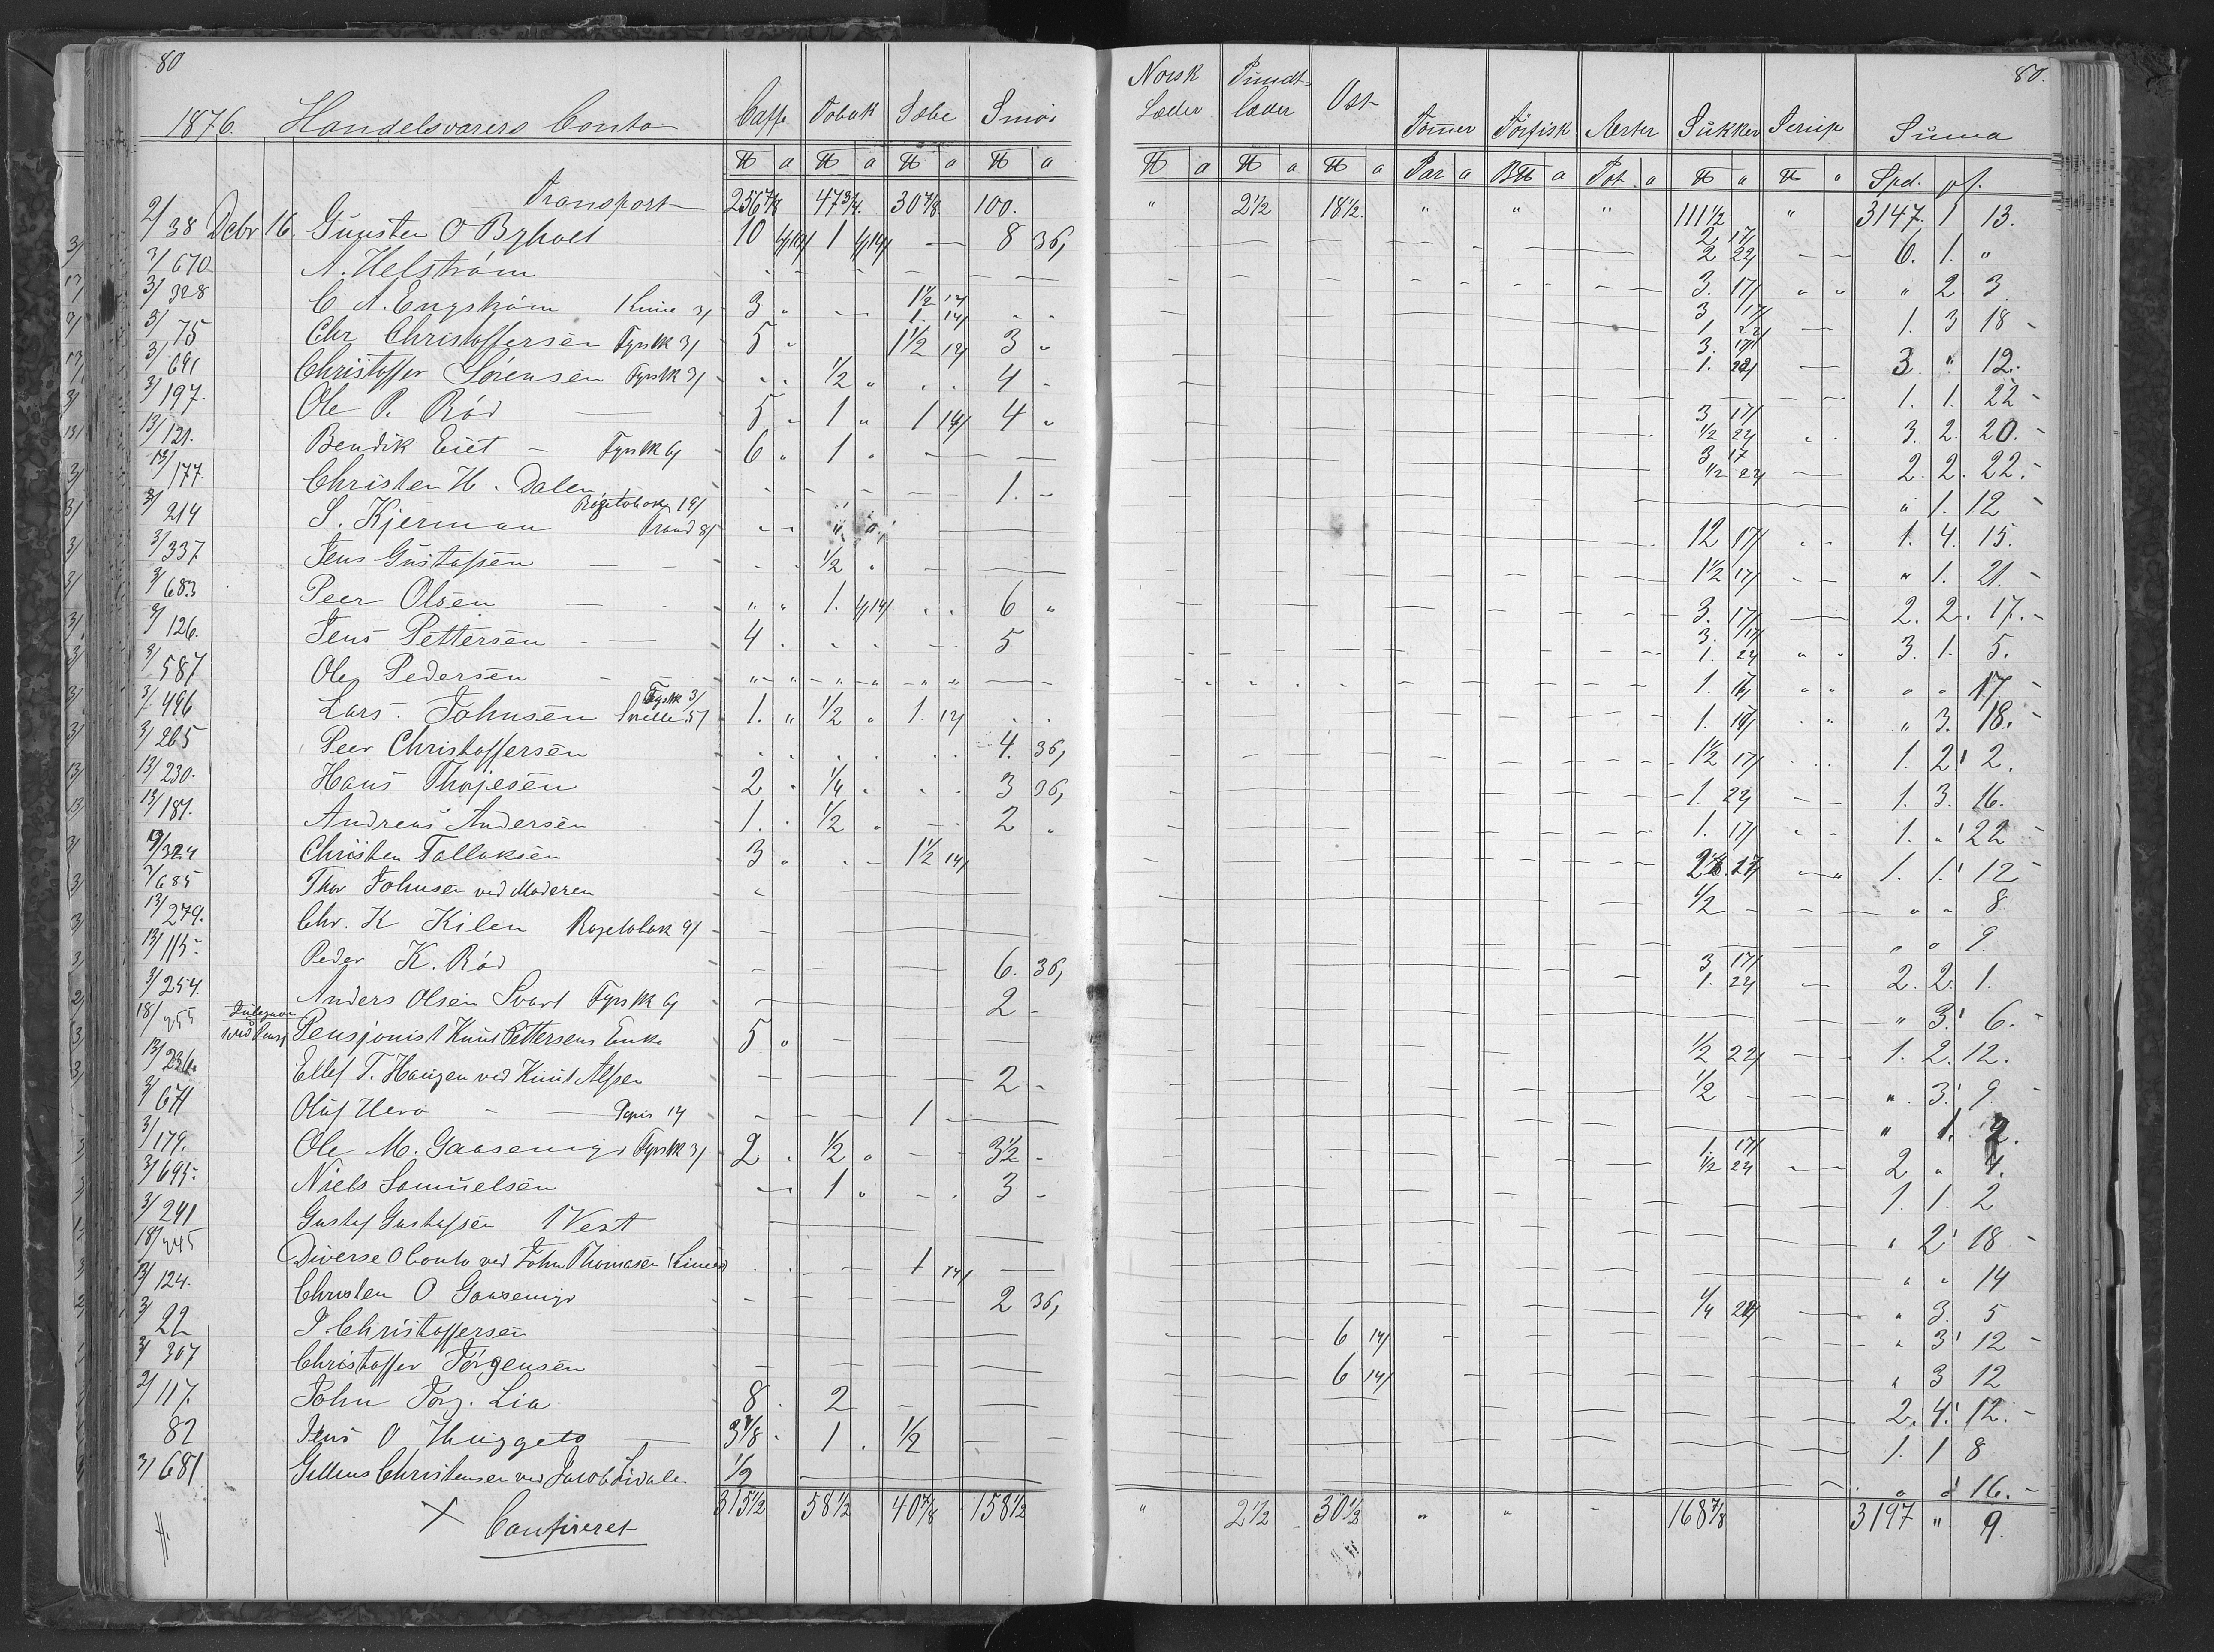 80
80.
1876. Handelsvarers Conto Caffe Tobak Sæbe Smör Norsk Læder Pundt-læder Ost Tömer Törfisk Aerter Sukker Sirup Suma
℔ a ℔ a ℔ a ℔ a ℔ a ℔ a ℔ a Par a B℔ a Pot a ℔ a ℔ " Spd. pf.
Transport 256 7/8 47 3/4 30 7/8 100. " 2 1/2 18 1/2 " " " 111 1/2 " 3147. 1 13.
2/38 Dcbr 16. Gunsten O Byholt 10 1 — 8 36, 2 17/ 2 22/ 6. 1. "
3/670 A. Helström 3. 17/ " 2 3
3/328 C A. Engström 3 " 1 1/2 1. 14/ 3 17/ 1. 22/ 1. 3 18
3/75 Chr Christoffersen Fyrstk 3/ 5 " 1 1/2 3 " 3. 17/ 1. 22/ 3. " 12.
3/691 Christoffer Sörensen Fyrstk 3/ 1/2 " 4 1. 1. 22
3/197. Ole P. Röd 5 1 " 1 14/ 4 " 3 17/ 1/2 22/ 3. 2. 20.
13/121. Bendik Eiet Fyrstk 6/ 6 " 1 " 3 17 1/2 22/ 2. 2. 22.
13/177. Christen H. Dalen 1. " 1. 12
3/214 S. Kjerman Rögetobak 19/ 8/ 12 17/ 1. 4. 15.
3/337 Jens Gustafsen 1/2 " 1 1/2 17/ " 1. 21.
3/683 Peer Olsen " " 1. 6 " 3. 17/ 2. 2. 17.
3/126. Jens Pettersen 4 5 3. 17/ 1. 22/ 3. 1. 5.
3/587 Ole Pedersen 1. " " 17.
3/496 Lars Johnsen Fyrstk 3/ 5/ 1. " 1/2 " 1. 1. " 3. 18.
3/265 Peer Christoffersen 4. 36, 1 1/2 17/ 1. 2. 2.
13/230. Hans Thojesen 2 1/4 3 36, 1. 22/ 1. 3. 16.
13/181. Andreas Andersen 1. 1/2 " 2 " 1. 17/ 1. " 22
3/324 Christen Tallaksen 3 " 1 1/2 14/ 1. 1. 12
3/685 Thor Johnsen ved Moderen 1/2 " " 8.
13/279. Chr. K Kilen Rögetobak 9/ " " 9
13/115. Peder K. Röd 6. 36, 3 17/ 1. 22/ 2. 2. 1.
3/254. Anders Olsen Svart Fyrstk 6/ 2 " 3. 6.
18/255 Pensjonist Knut Pettersens Enke 5 " 1/2 22/ 1. 2. 12.
13/236 Ellef T. Haugen ved Knut Alfsen 2 1/2 " 3. 9.
3/671 Oluf Hero Papir 14 1 " 1. 2.
3/179. Ole M. Gaasemyr Fyrstk 3/ 2 1/2 " 3 1/2 1. 17/ 1/2 22/ 2 " 4.
3/695. Niels Samuelsen 1 " 3 1. 1. 2
3/241 Gustaf Gustafsen 1 Vest " 2 18
18/245 Diverse O Conto ved John Thomasen 1 14/ " " 14
13/124. Christen O Gaasemyr 2 36, 1/4 " 3. 5
3/22 P. Christoffersen 6 14/ " 3 12
3/307 Christoffer Törgensen 6 14/ " 3 12
2/117. John Törg. Lia 8 2 2. 4. 12.
82 Jens O Thuggeto 3 7/8 1 1/2 1. 1 8
3/681 Gellius Christensen ved Jacob Lidalen 1/2 16.
315 1/2 58 1/2 40 7/8 158 1/2 " 2 1/2 30 1/2 " " 168 7/8 3197 " 9.
X Confireret